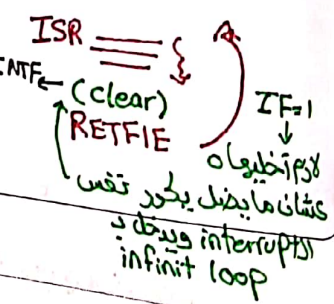 ISR
INTF ← (clear)
RETFIE
IF=1
لازم تخليها 0
عشان ما يضل يكرر نفس
ال interrupt ويدخل ب
infinit loop